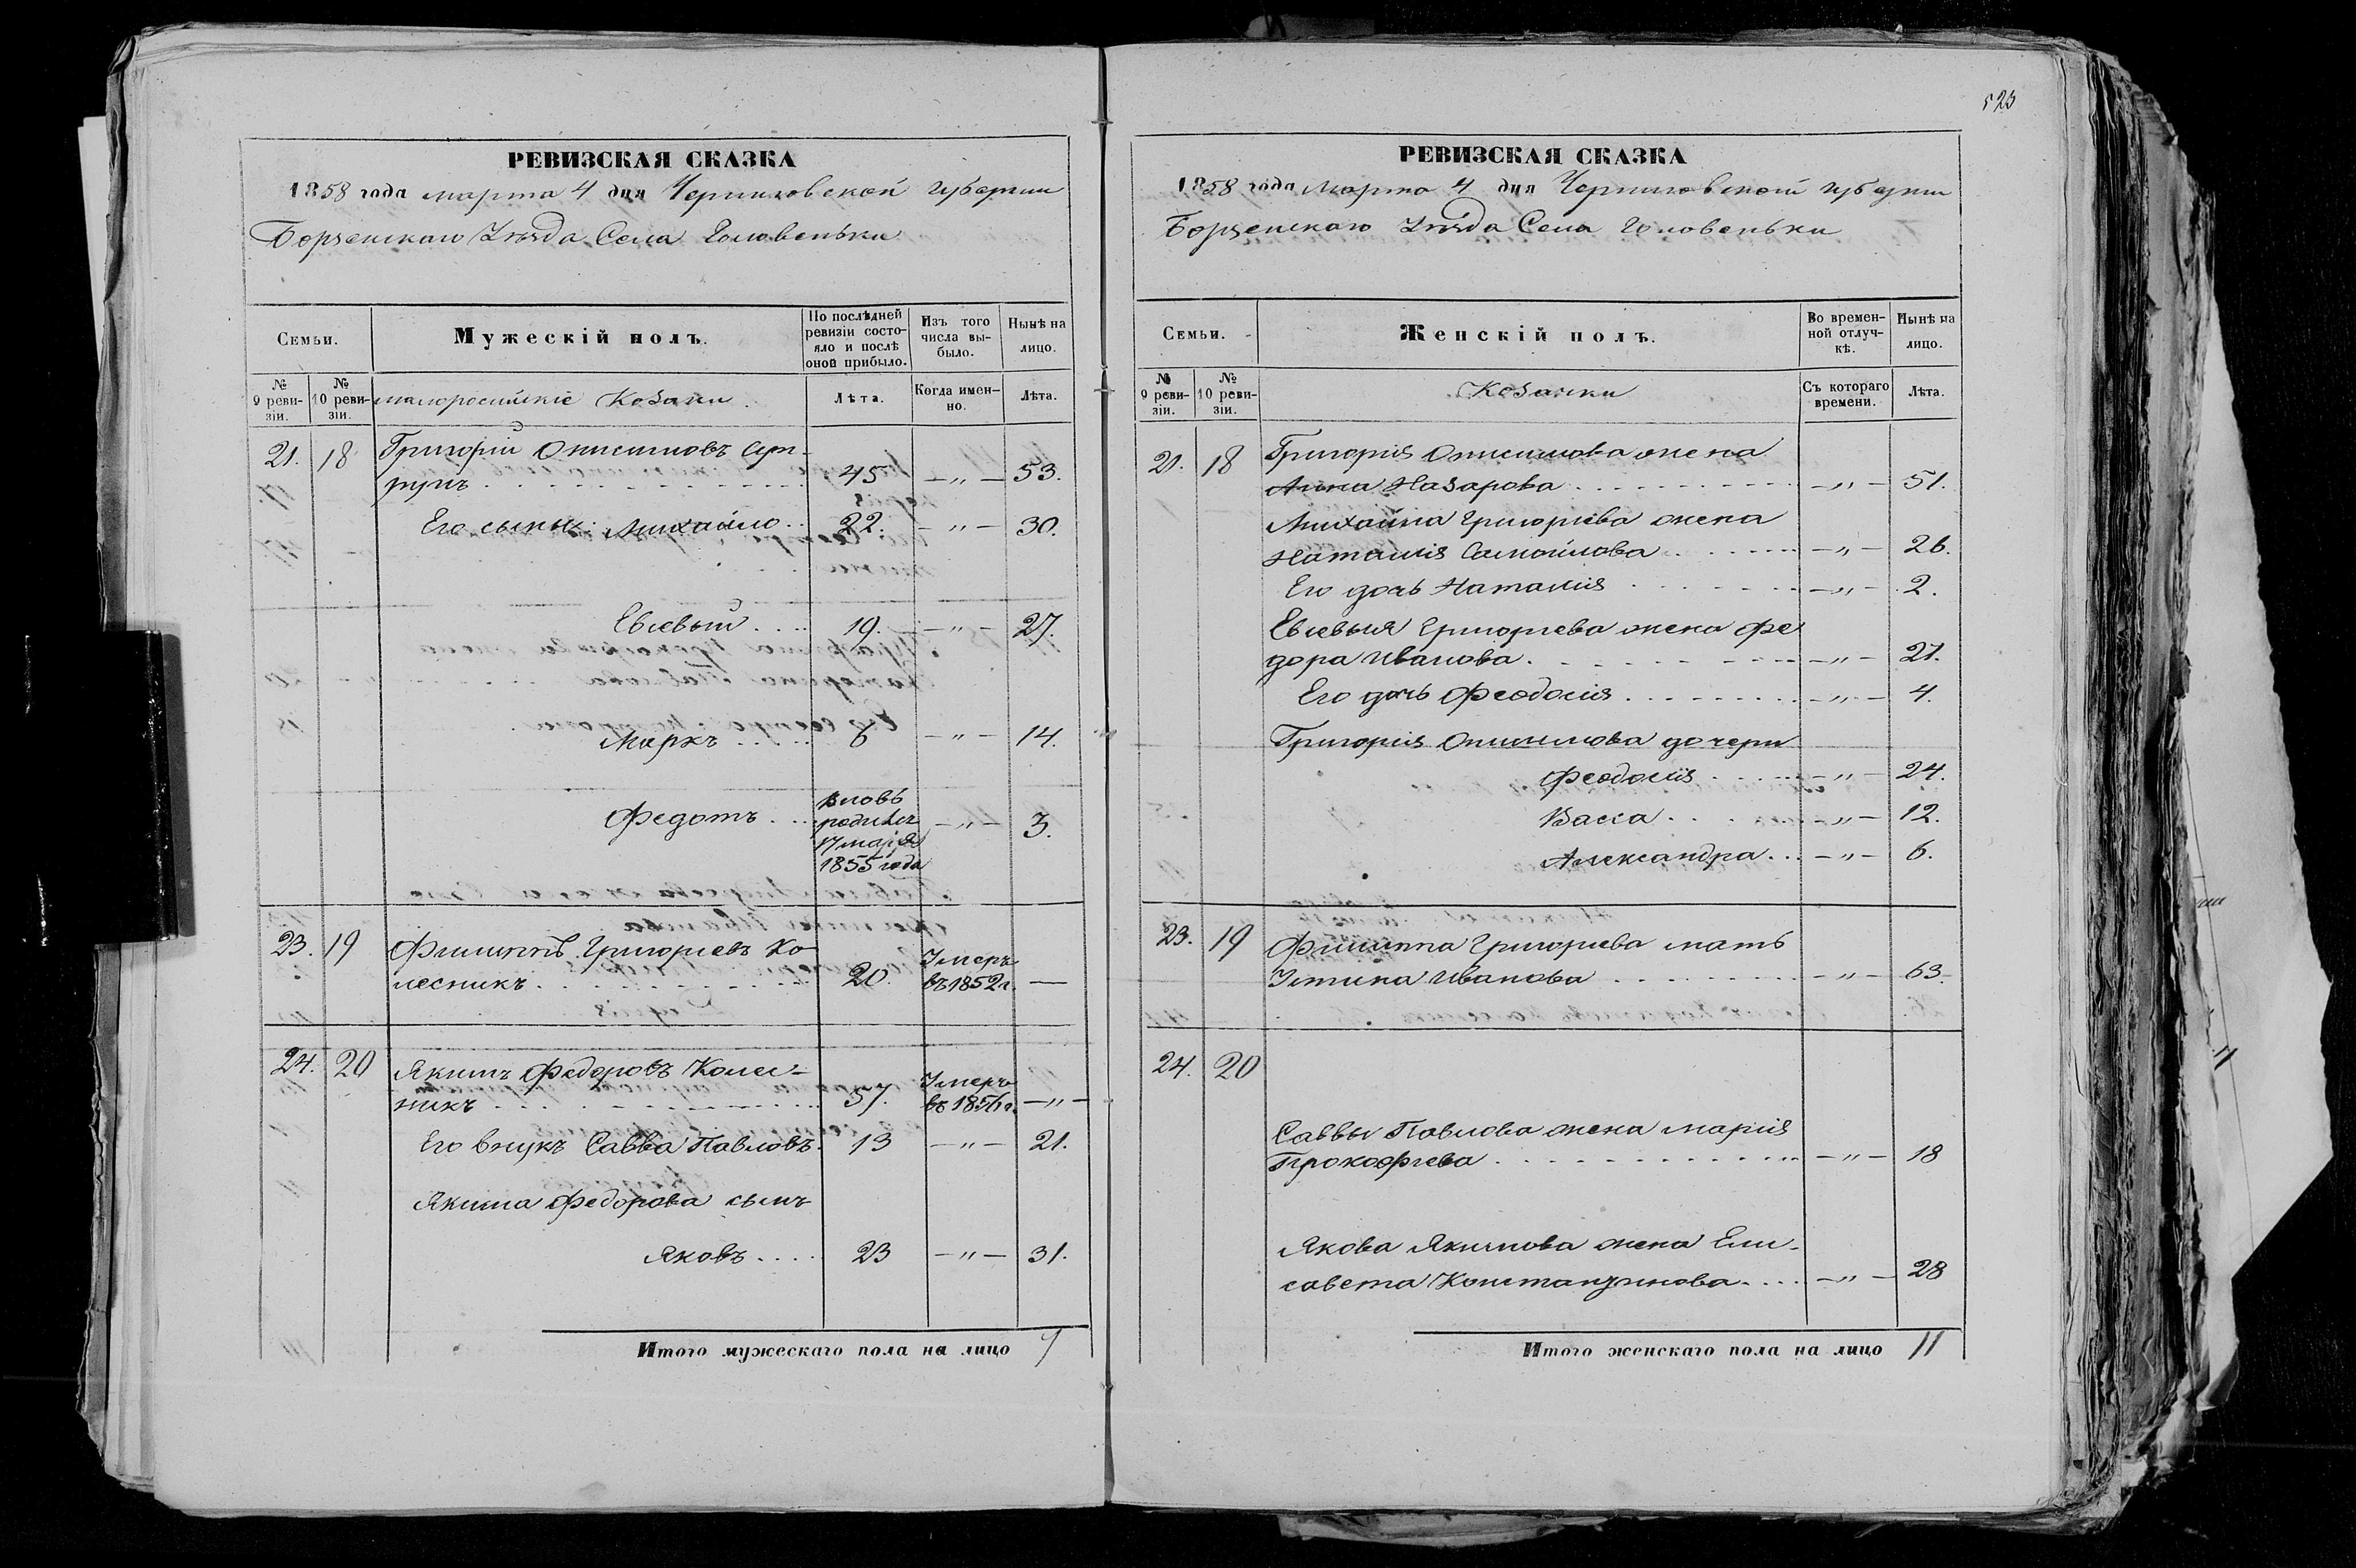 РЕВИЗСКАЯ СКАЗКА
1858 года марта 4 дня Черниговской губернии
Борзенскаго Уѣзда Села Головеньки
Семьи.
Мужескій полъ.
По послѣдней ревизіи состояло и послѣ оной прибыло.
Изъ того числа выбыло.
Нынѣ на лицо.
№ 9 ревизіи.
№ 10 ревизіи.
малоросійскіе Козаки.
Лѣта.
Когда именно.
Лѣта.
21. 18 Григорій Онисимовъ Суп-
рунъ 45 —"— 53.
Его сыны: Михайло 22. —"— 30.
Евсевый 19. —"— 27.
Маркъ 6 —"— 14.
вновь
Федотъ родился —"— 3.
17 марта
1855 года
23. 19 Филиппъ Григорьевъ Ко-
лесникъ 20. Умеръ въ 1852 г. —
24. 20 Якимъ Федоровъ Колес-
никъ 57. Умеръ въ 1856 г. —"—
Его внукъ Савва Павловъ. 13 —"— 21.
Якима Федорова сынъ
Яковъ 23 —"— 31.
Итого мужескаго пола на лицо 7
523
РЕВИЗСКАЯ СКАЗКА
1858 года марта 4 дня Черниговской губернии
Борзенскаго Уѣзда Села Головеньки
Семьи.
Женскій полъ.
Во временной отлучкѣ.
Нынѣ на лицо.
№ 9 ревизіи.
№ 10 ревизіи.
Козачки
Съ котораго времени.
Лѣта.
21. 18 Григорія Онисимова жена
Анна Назарова —"— 51.
Михайла Григорьева жена
Наталія Самойлова —"— 26.
Его дочь Наталія —"— 2.
Евсевыя Григорьева жена Фе
дора Иванова —"— 27.
Его дочь Феодосія —"— 4.
Григорія Онисимова дочери
Феодосія —"— 24.
Васса —"— 12.
Александра —"— 6.
23. 19 Филиппа Григорьева мать
Устина Иванова —"— 63.
24. 20
Саввы Павлова жена марія
Прокофіева —"— 18
Якова Якимова жена Ели-
савета Константинова —"— 28
Итого женскаго пола на лицо 11